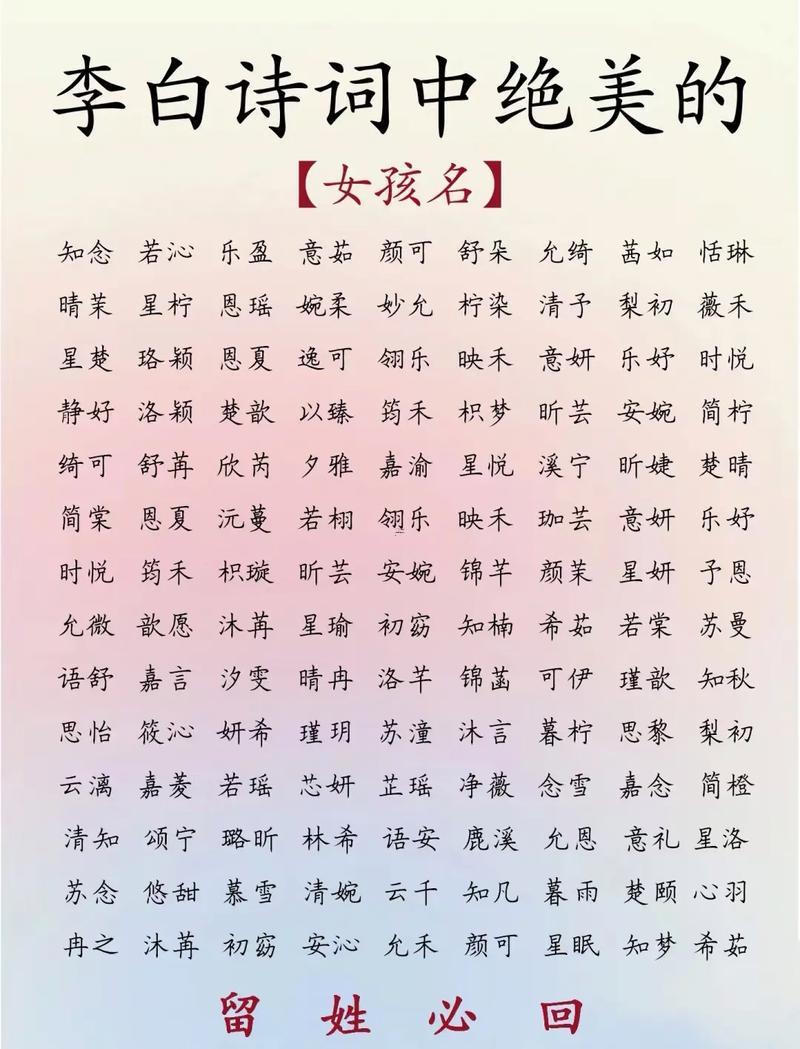 李白诗词中绝美的
【女孩名】
知念 若沁 乐盈 意茹 颜可 舒朵 允绮 茜如 恬琳
晴茉 星柠 恩瑶 婉柔 妙允 柠染 清予 梨初 薇禾
星楚 珞颖 恩夏 逸可 翎乐 映禾 意妍 乐妤 时悦
静好 洛颖 楚歆 以臻 筠禾 枳梦 昕芸 安婉 简柠
绮可 舒苒 欣芮 夕雅 嘉渝 星悦 溪宁 昕婕 楚晴
简棠 恩夏 沅蔓 若栩 翎乐 映禾 珈芸 意妍 乐妤
时悦 筠禾 枳璇 昕芸 安婉 锦芊 颜茉 星妍 予恩
允微 歆愿 沐苒 星瑜 初窈 知楠 希茹 若棠 苏曼
语舒 嘉言 汐雯 晴冉 洛芊 锦菡 可伊 瑾歆 知秋
思怡 筱沁 妍希 瑾玥 苏潼 沐言 暮柠 思黎 梨初
云漓 嘉菱 若瑶 芯妍 芷瑶 净薇 念雪 嘉念 简橙
清知 颂宁 璐昕 林希 语安 鹿溪 允恩 意礼 星洛
苏念 悠甜 慕雪 清婉 云千 知几 暮雨 楚颐 心羽
冉之 沐苒 初窈 安沁 允禾 颜可 星眠 知梦 希茹
留姓必回